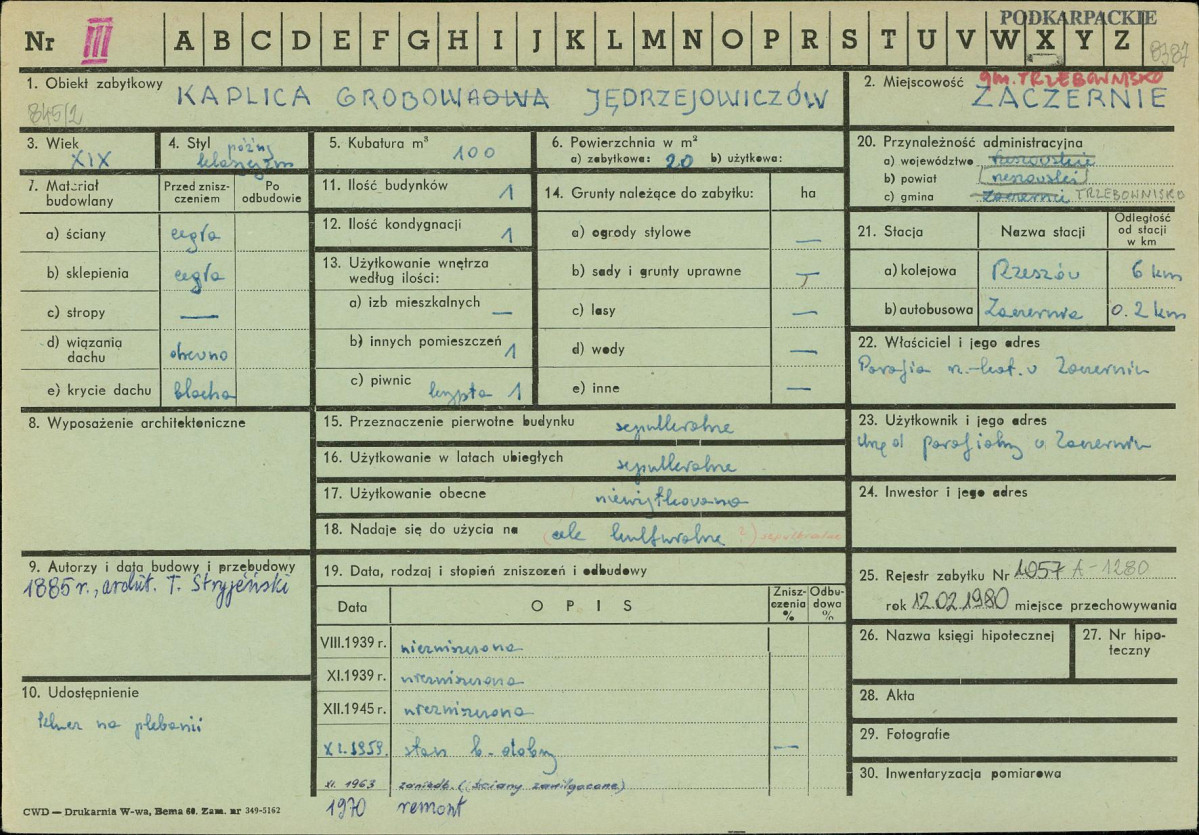 PODKARPACKIE
Nr III A B C D E F G H I J K L M N O P R S T U V W X Y Z
8387
1. Obiekt zabytkowy KAPLICA GROBOWAOWA JĘDRZEJOWICZÓW
845/2
2. Miejscowość gm. TRZEBOWNISKO
ZACZERNIE
3. Wiek XIX
4. Styl późny klasycyzm
5. Kubatura m³ 100
6. Powierzchnia w m²
a) zabytkowa: 20 b) użytkowa:
7. Materiał budowlany
Przed zniszczeniem
Po odbudowie
a) ściany cegła
b) sklepienia cegła
c) stropy —
d) wiązania dachu drewno
e) krycie dachu blacha
8. Wyposażenie architektoniczne
9. Autorzy i data budowy i przebudowy
1885 r., archit. T. Stryjeński
10. Udostępnienie
klucz na plebanii
11. Ilość budynków 1
12. Ilość kondygnacji 1
13. Użytkowanie wnętrza według ilości:
a) izb mieszkalnych —
b) innych pomieszczeń 1
c) piwnic krypta 1
14. Grunty należące do zabytku: ha
a) ogrody stylowe —
b) sady i grunty uprawne —
c) lasy —
d) wody —
e) inne —
15. Przeznaczenie pierwotne budynku sepulkralne
16. Użytkowanie w latach ubiegłych sepulkralne
17. Użytkowanie obecne nieużytkowana
18. Nadaje się do użycia na (cele kulturalne ?) sepulkralne
19. Data, rodzaj i stopień zniszczeń i odbudowy
Data
O P I S
Zniszczenia %
Odbudowa %
VIII.1939 r. niezniszczona
XI.1939 r. niezniszczona
XII.1945 r. niezniszczona
XI.1959. stan b. dobry —
XI. 1963 zaniedb. (ściany zawilgocone)
1970 remont
20. Przynależność administracyjna
a) województwo rzeszowskie
b) powiat rzeszowski
c) gmina Zaczernie TRZEBOWNISKO
21. Stacja
Nazwa stacji
Odległość od stacji w km
a) kolejowa Rzeszów 6 km
b) autobusowa Zaczernie 0.2 km
22. Właściciel i jego adres
Parafia rz.-kat. w Zaczerniu
23. Użytkownik i jego adres
Urząd parafialny w Zaczerniu
24. Inwestor i jego adres
25. Rejestr zabytku Nr 1057 A-1280
rok 12.02.1980 miejsce przechowywania
26. Nazwa księgi hipotecznej
27. Nr hipoteczny
28. Akta
29. Fotografie
30. Inwentaryzacja pomiarowa
CWD — Drukarnia W-wa, Bema 60. Zam. nr 349-5162